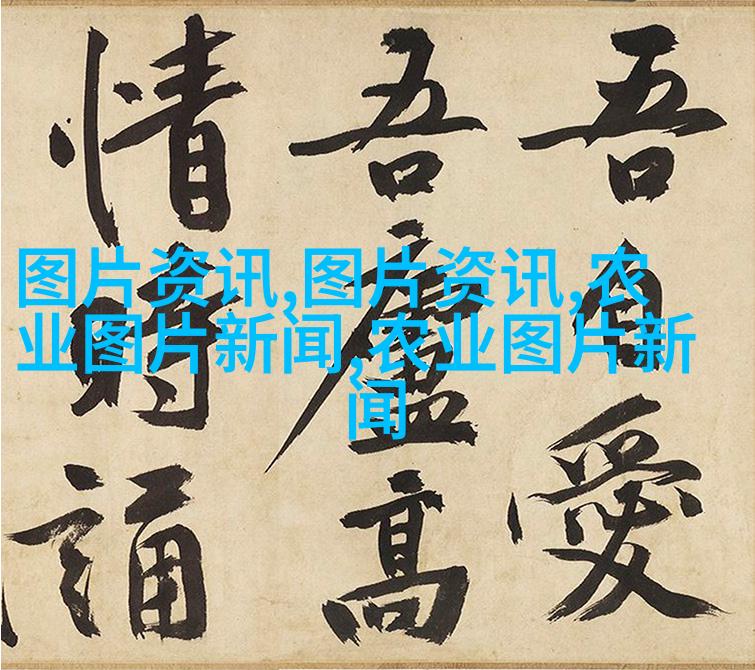 吾自愛
吾廬高
情時誦
图片资讯,图片资讯,农
业图片新闻,农业图片新
闻